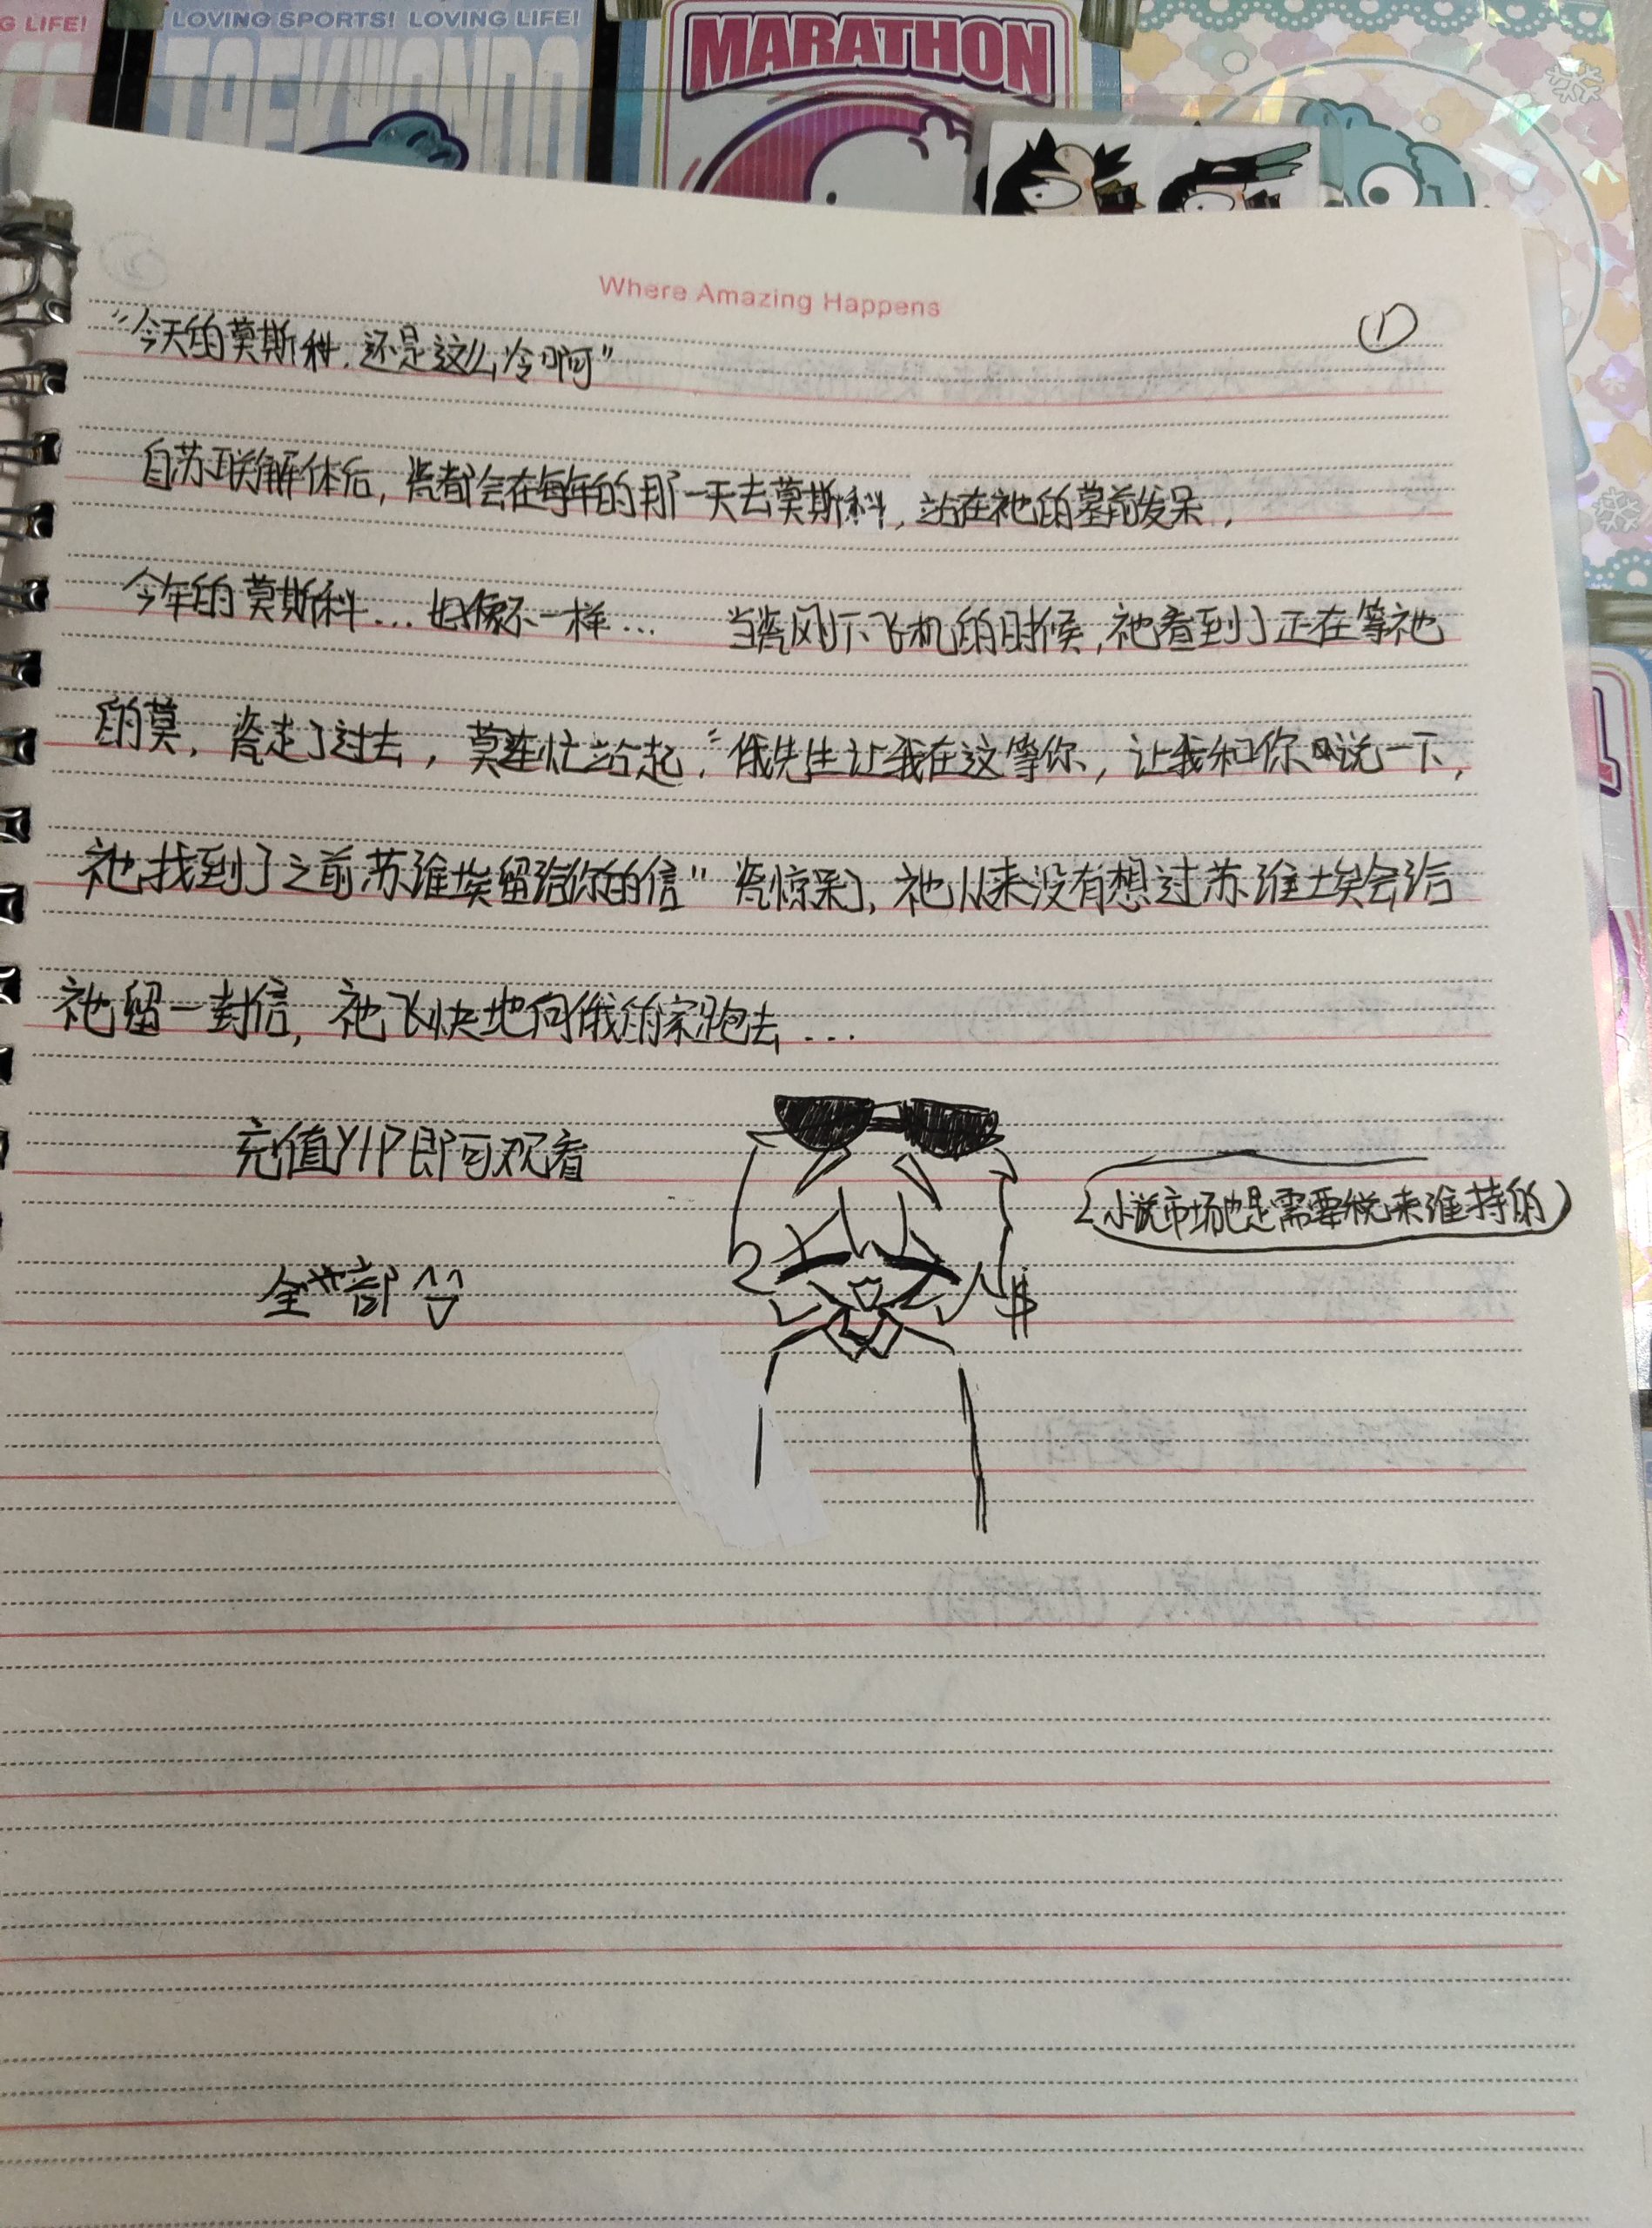 G LIFE!
LOVING SPORTS! LOVING LIFE!
TAEKWONDO
MARATHON
Where Amazing Happens
①
“今天的莫斯科,还是这么冷啊”
自苏联解体后,瓷都会在每年的那一天去莫斯科,站在祂的墓前发呆,
今年的莫斯科...好像不一样... 当瓷刚下飞机的时候,祂看到了正在等祂
的莫,瓷走了过去,莫连忙站起,“俄先生让我在这等你,让我和你说一下,
祂找到了之前苏维埃留给你的信”瓷惊呆了,祂从来没有想过苏维埃会给
祂留一封信,祂飞快地向俄的家跑去...
充值VIP即可观看
(小说市场也是需要税来维持的)
全部^^
$